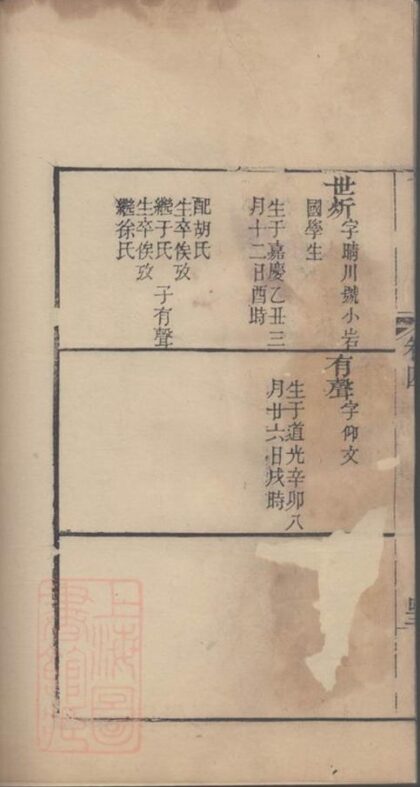 世炘
字晴川號小岩
國學生
生于嘉慶乙丑三
月十二日酉時
配胡氏
生卒俟攷
繼于氏 子有聲
生卒俟攷
繼徐氏
有聲
字仰文
生于道光辛卯八
月廿六日戌時
卷四
上海圖
書館藏